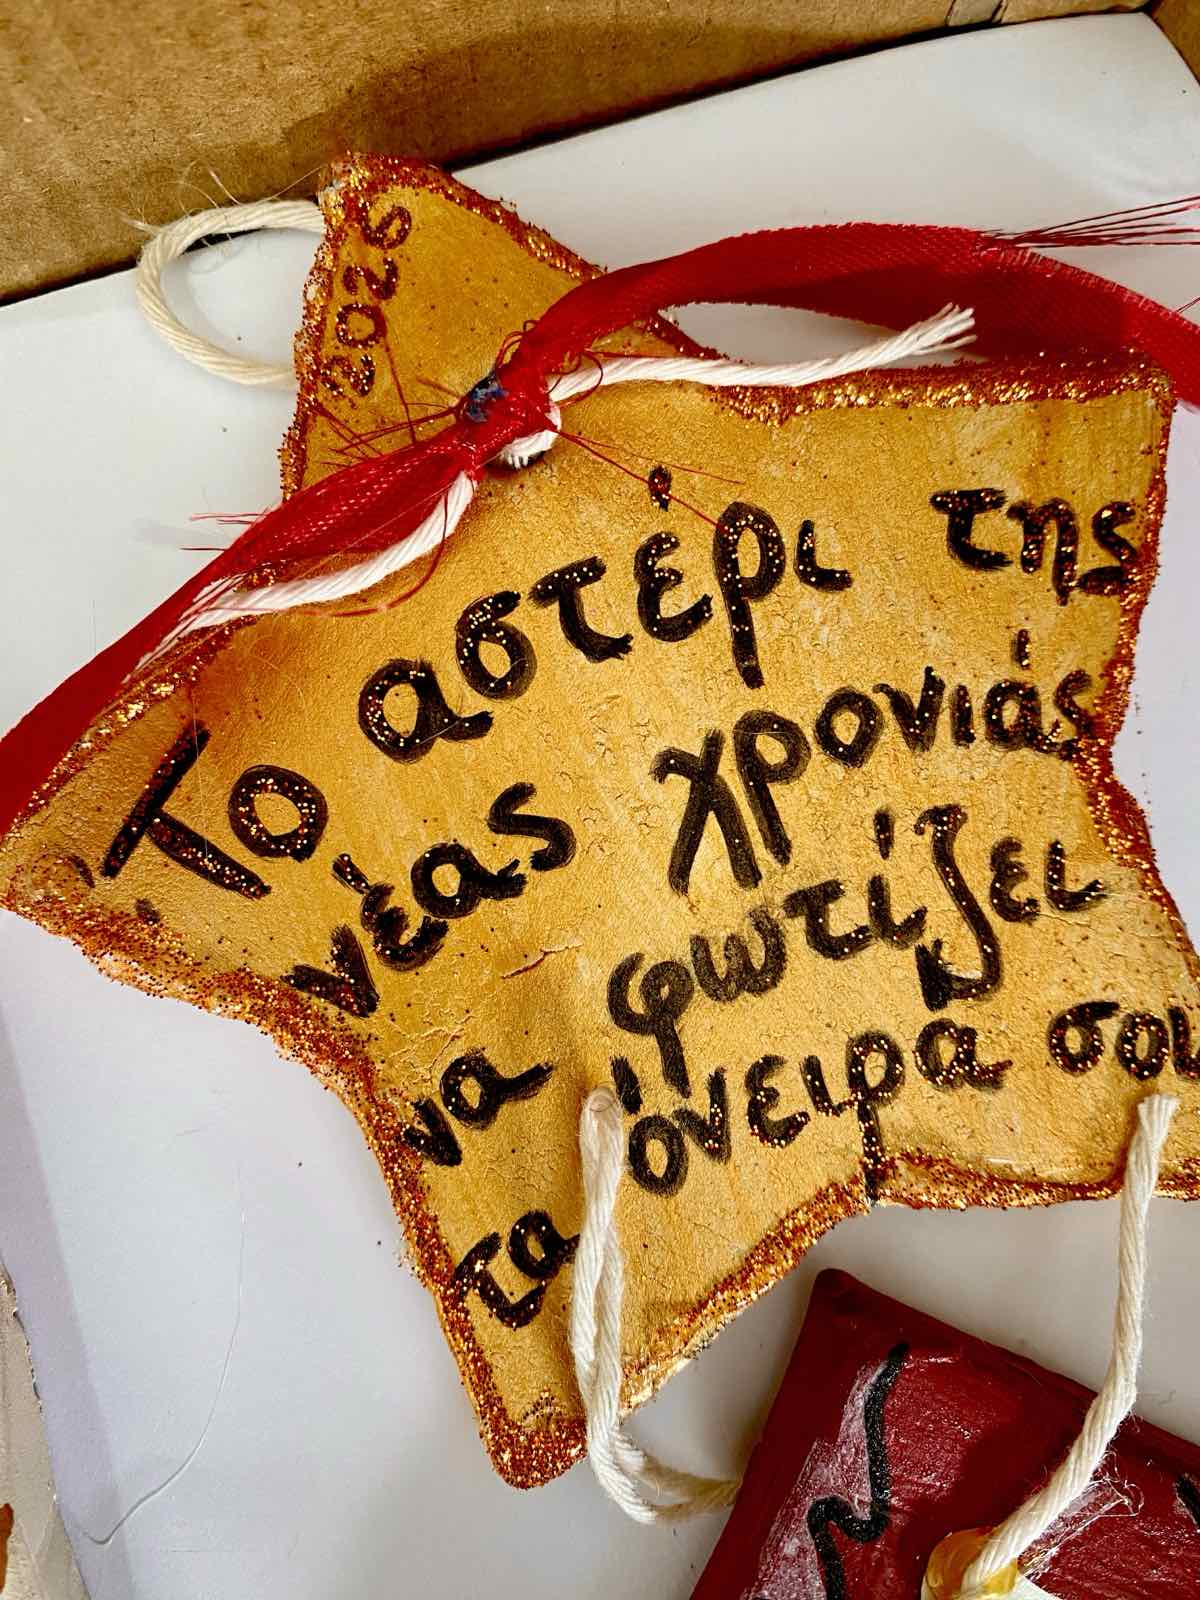 2026
Το αστέρι της
νέας χρονιάς
να φωτίζει
τα όνειρά σου